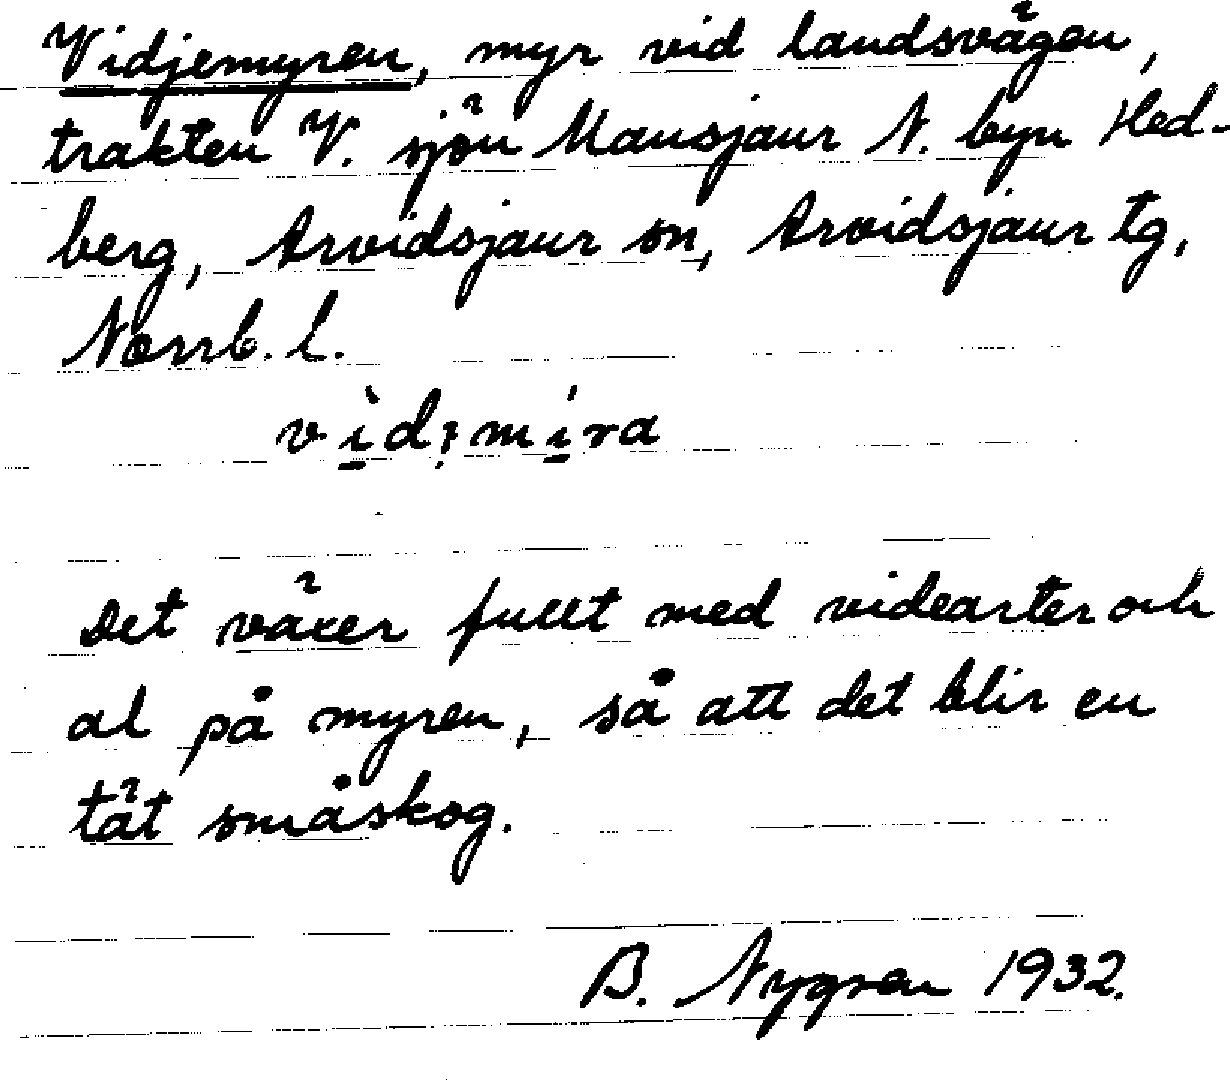 Vidjemyren, myr vid landsvägen,
trakten V. sjön Mausjaur N. byn Hed-
berg, Arvidsjaur sn, Arvidsjaur tg,
Norrb. l.
Det växer fullt med videarter och
al på myren, så att det blir en
tät småskog.
B. Nygren 1932.